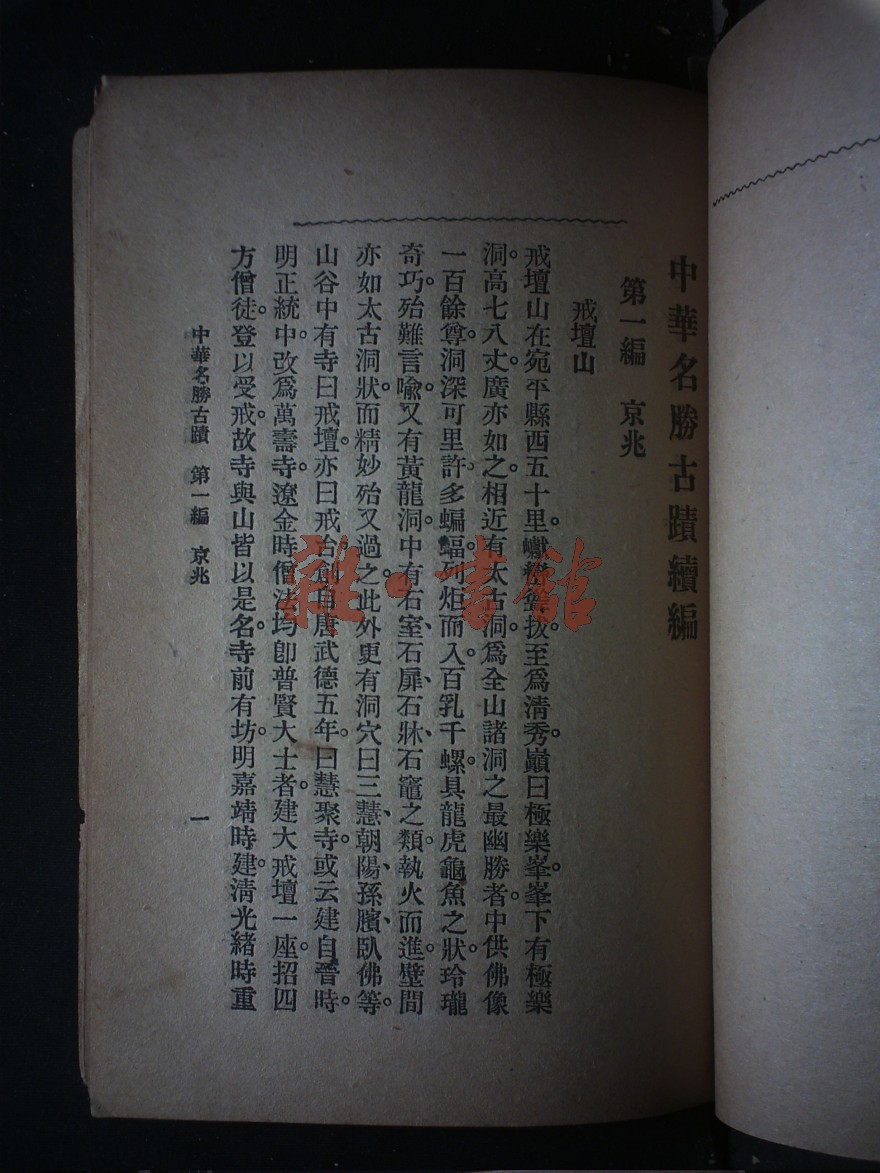 中華名勝古蹟續編
第一編　京兆
戒壇山
戒壇山在宛平縣西五十里。巘崿聳拔。至爲淸秀。巔曰極樂峯。峯下有極樂
洞。高七八丈。廣亦如之。相近有太古洞。爲全山諸洞之最幽勝者。中供佛像
一百餘尊。洞深可里許。多蝙蝠。列炬而入。百乳千螺。具龍虎龜魚之狀。玲瓏
奇巧。殆難言喩。又有黃龍洞。中有石室、石扉、石牀、石竈之類。執火而進。壁間
亦如太古洞狀。而精妙殆又過之。此外更有洞穴曰三慧、朝陽、孫臏、臥佛等。
山谷中有寺曰戒壇。亦曰戒台。創自唐武德五年。曰慧聚寺。或云建自晉時。
明正統中。改爲萬壽寺。遼金時。僧法均卽普賢大士者。建大戒壇一座。招四
方僧徒。登以受戒。故寺與山皆以是名。寺前有坊。明嘉靖時建。淸光緒時重
中華名勝古蹟　第一編　京兆
一
雜·書館